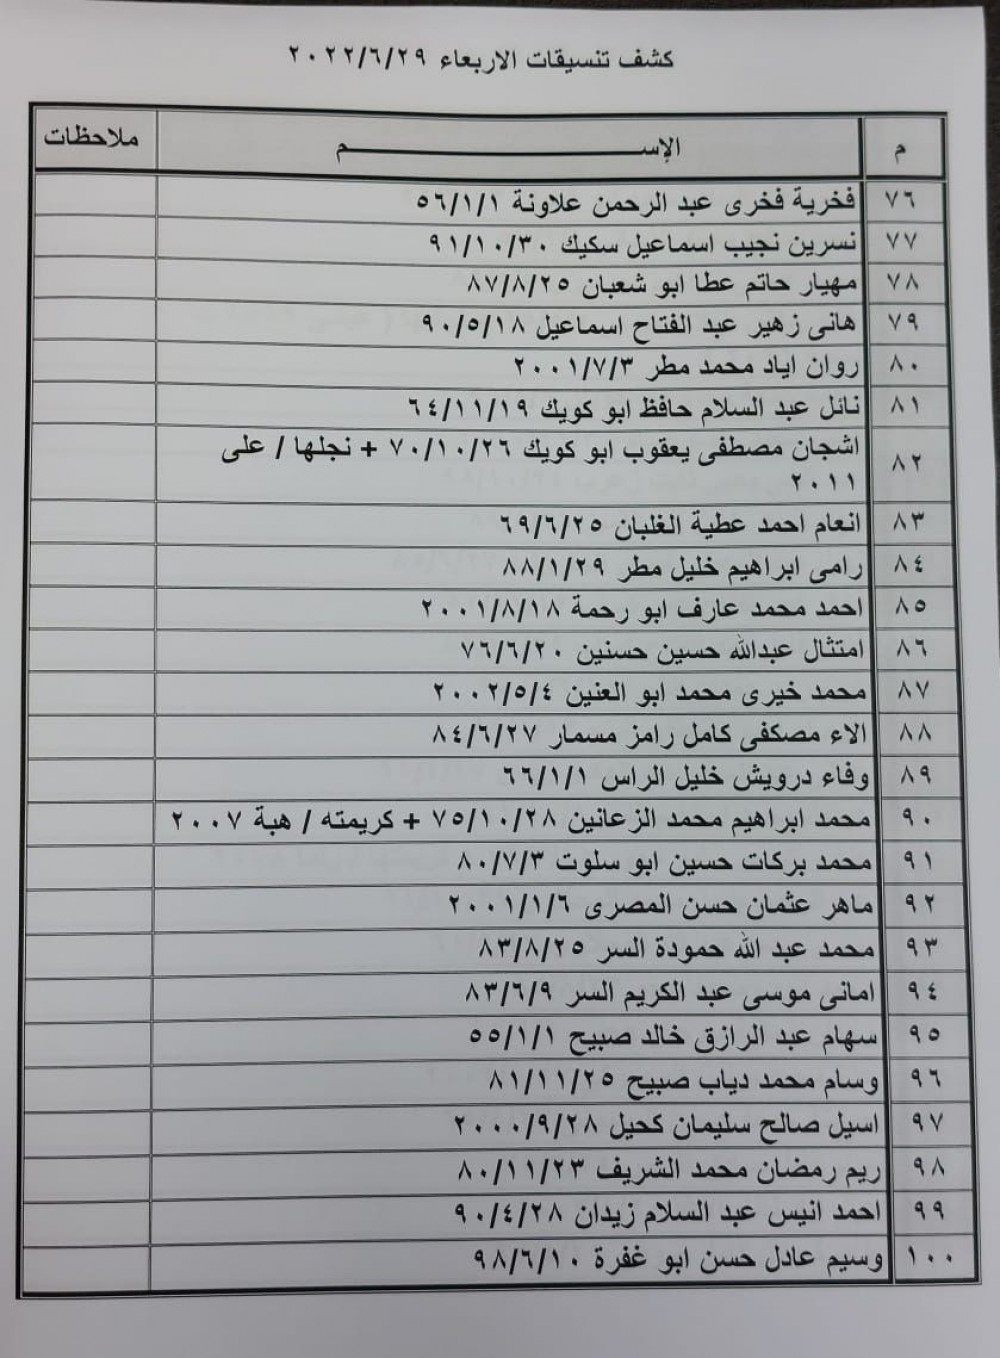 كشف تنسيقات الاربعاء ٢٠٢٢/٦/٢٩
م الإســـــــــــــــــم ملاحظات
٧٦ فخرية فخرى عبد الرحمن علاونة ٥٦/١/١
٧٧ نسرين نجيب اسماعيل سكيك ٩١/١٠/٣٠
٧٨ مهيار حاتم عطا ابو شعبان ٨٧/٨/٢٥
٧٩ هانى زهير عبد الفتاح اسماعيل ٩٠/٥/١٨
٨٠ روان اياد محمد مطر ٢٠٠١/٧/٣
٨١ نائل عبد السلام حافظ ابو كويك ٦٤/١١/١٩
٨٢ اشجان مصطفى يعقوب ابو كويك ٧٠/١٠/٢٦ + نجلها / على
٢٠١١
٨٣ انعام احمد عطية الغلبان ٦٩/٦/٢٥
٨٤ رامى ابراهيم خليل مطر ٨٨/١/٢٩
٨٥ احمد محمد عارف ابو رحمة ٢٠٠١/٨/١٨
٨٦ امتثال عبدالله حسين حسنين ٧٦/٦/٢٠
٨٧ محمد خيرى محمد ابو العنين ٢٠٠٢/٥/٤
٨٨ الاء مصكفى كامل رامز مسمار ٨٤/٦/٢٧
٨٩ وفاء درويش خليل الراس ٦٦/١/١
٩٠ محمد ابراهيم محمد الزعانين ٧٥/١٠/٢٨ + كريمته / هبة ٢٠٠٧
٩١ محمد بركات حسين ابو سلوت ٨٠/٧/٣
٩٢ ماهر عثمان حسن المصرى ٢٠٠١/١/٦
٩٣ محمد عبد الله حمودة السر ٨٣/٨/٢٥
٩٤ امانى موسى عبد الكريم السر ٨٣/٦/٩
٩٥ سهام عبد الرازق خالد صبيح ٥٥/١/١
٩٦ وسام محمد دياب صبيح ٨١/١١/٢٥
٩٧ اسيل صالح سليمان كحيل ٢٠٠٠/٩/٢٨
٩٨ ريم رمضان محمد الشريف ٨٠/١١/٢٣
٩٩ احمد انيس عبد السلام زيدان ٩٠/٤/٢٨
١٠٠ وسيم عادل حسن ابو غفرة ٩٨/٦/١٠